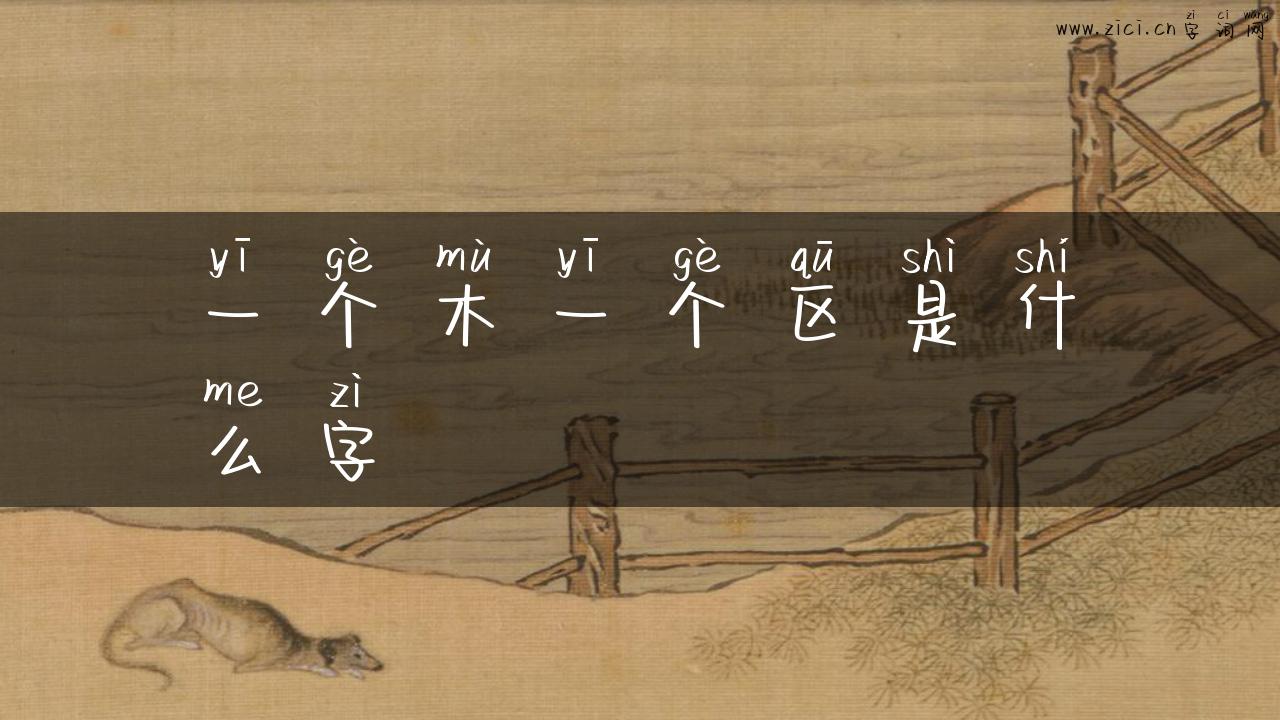 zì cí wǎng
www.zici.cn 字词网
yī gè mù yī gè qū shì shí
一个木一个区是什
me zì
么字